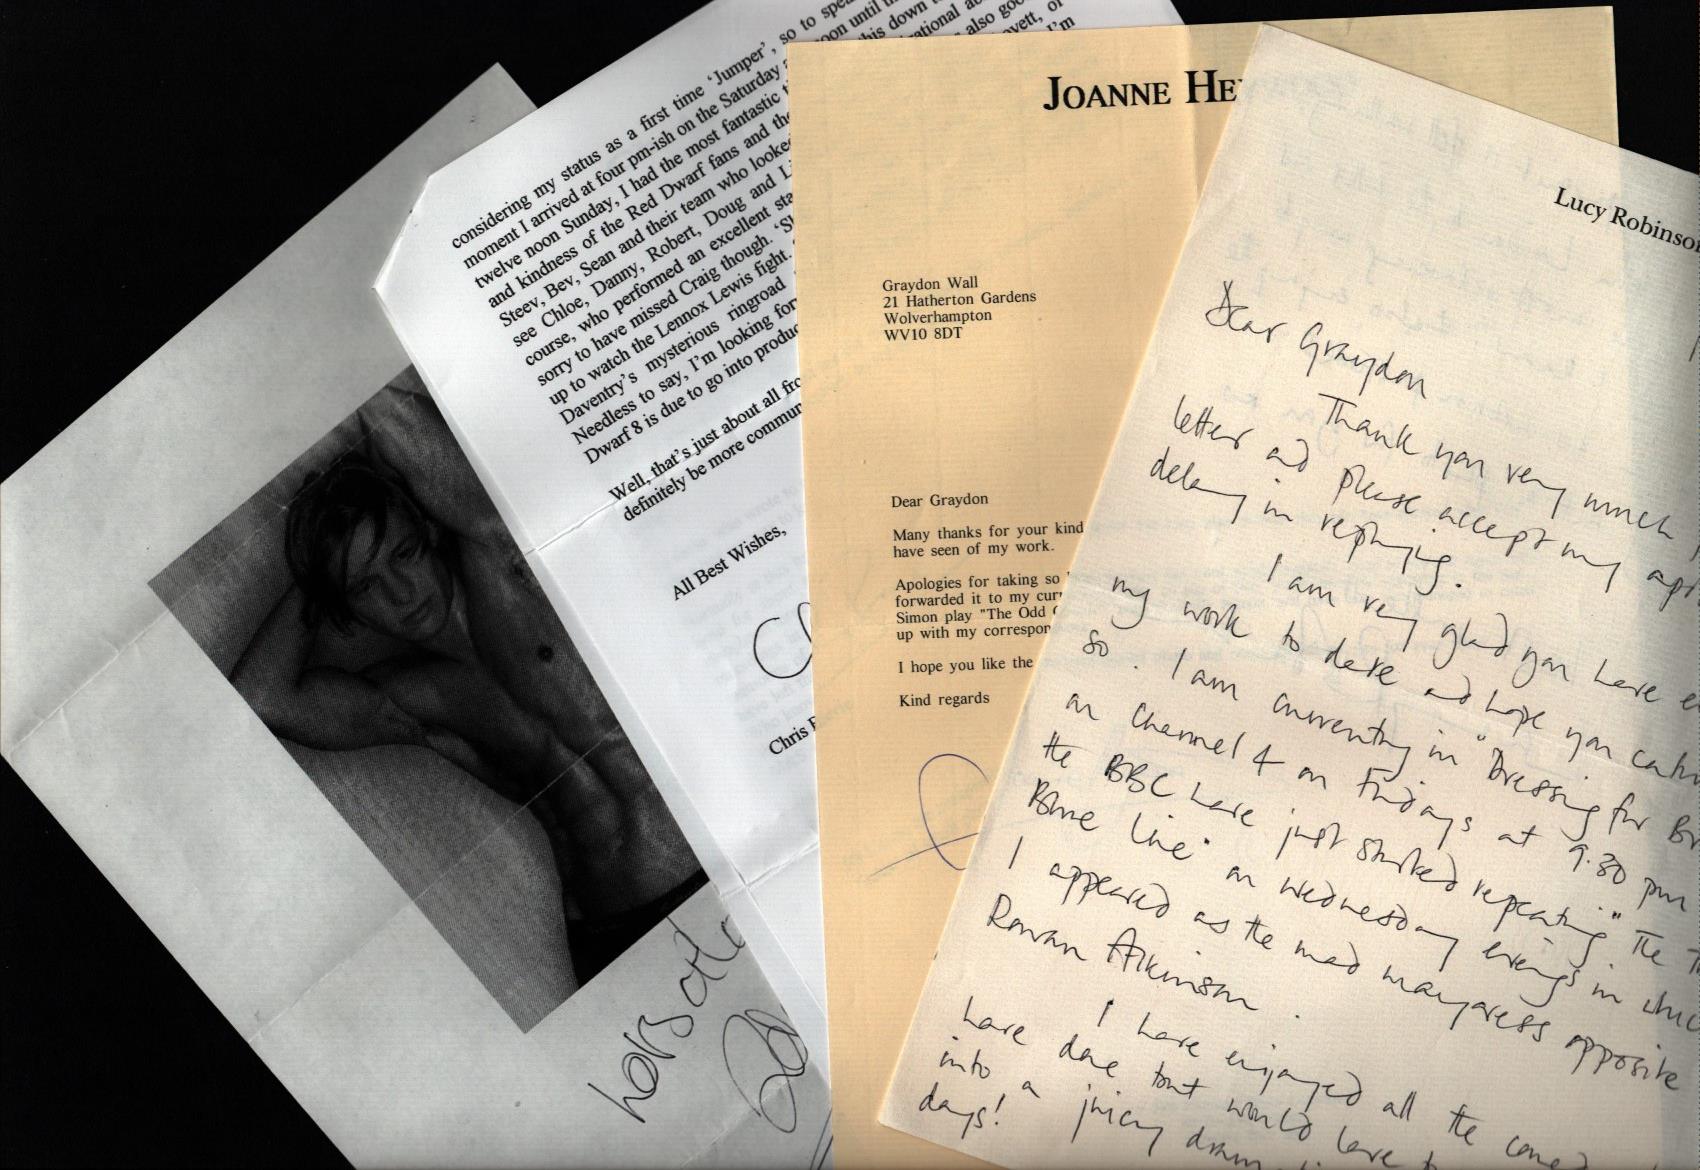 considering my status as a first time 'Jumper', so to
moment I arrived at four pm-ish on the Saturday
twelve noon Sunday, I had the most fantastic
and kindness of the Red Dwarf fans and the
Steev, Bev, Sean and their team who looked
see Chloe, Danny, Robert, Doug and
course, who performed an excellent
sorry to have missed Craig though.
up to watch the Lennox Lewis fight.
Daventry's mysterious ringroad
Needless to say, I'm looking
Dwarf 8 is due to go into
Well, that's just about all
definitely be more
All Best Wishes,
Chris
JOANNE
Graydon Wall
21 Hatherton Gardens
Wolverhampton
WV10 8DT
Dear Graydon
Many thanks for your kind
have seen of my work.
Apologies for taking so
forwarded it to my
Simon play "The Odd
up with my
I hope you like the
Kind regards
Lucy Robinson
Dear Graydon
Thank you very much
letter and please accept my
delay in replying.
I am very glad you have
my work to date and hope you
so. I am currently in "Dressing for
on Channel 4 on Fridays at 9.30 pm
the BBC have just started repeating "The
Line" on Wednesday evenings in
I appeared as the mad mayoress opposite
Rowan Atkinson.
I have enjoyed all the
have done but would love
into a juicy
days!